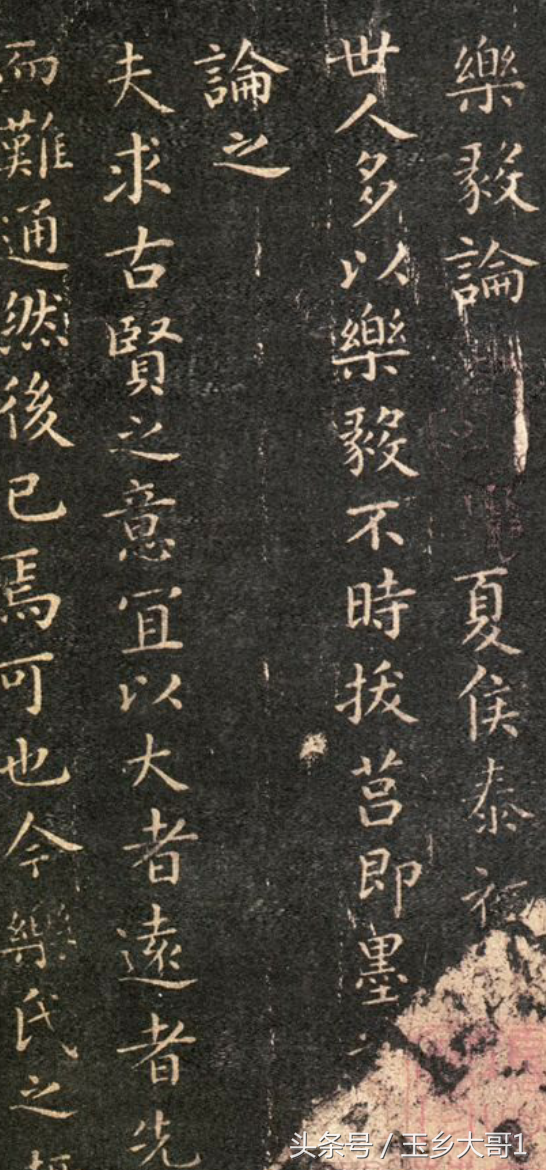 樂毅論 夏侯泰初
世人多以樂毅不時拔莒即墨
論之
夫求古賢之意宜以大者遠者先
而難通然後已焉可也今樂氏之
头条号 / 玉乡大哥1